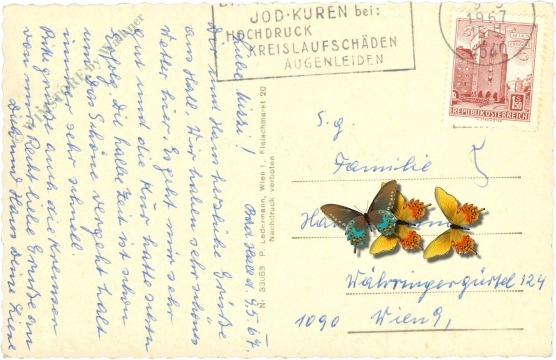 JOD-KUREN bei:
HOCHDRUCK
KREISLAUFSCHÄDEN
AUGENLEIDEN
1967
REPUBLIK ÖSTERREICH
1.50
Bad Hall d. 9.5.67.
Liebe Mitzi!
Dir und Hans herzliche Grüße
aus Hall. Wir haben sehr schönes
Wetter hier. Es geht mir sehr
gut und die Kur hatte guten
Erfolg. Die halbe Zeit ist schon
um. Das Schöne vergeht halt
immer sehr schnell.
Bitte grüße auch die
von mir. Recht liebe Grüße an
Dich und Hans Deine
Nr. 33063 P. Ledermann, Wien I, Fleischmarkt 20
Nachdruck verboten
S.g.
Familie
Währingergürtel 124
1090 Wien 9,